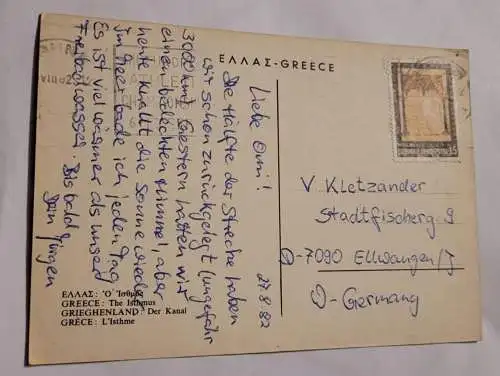 ΕΛΛΑΣ-GREECE
27.8.82
Liebe Omi!
Die Hälfte der Strecke haben
wir schon zurückgelegt (ungefähr
3000 km) Gestern hatten wir
einen bedeckten Himmel, aber
heute knallt die Sonne wieder.
Im Meer bade ich jeden Tag
Es ist viel wärmer als unser
Freibadwasser. Bis bald
Dein Jürgen
V. Kletzander
Stadtfischerg 9
D-7090 Ellwangen/J
D-Germany
ΕΛΛΑΣ: Ὁ Ἰσθμὸς
GREECE: The Isthmus
GRIECHENLAND: Der Kanal
GRÈCE: L'Isthme
15